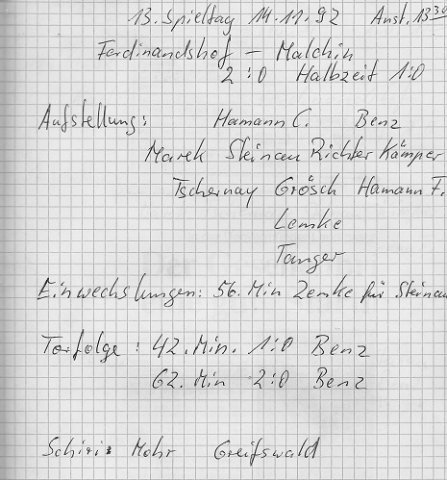 13. Spieltag 14.11.92 Anst. 13³⁰
Ferdinandshof - Malchin
2:0 Halbzeit 1:0
Aufstellung: Hamann C. Benz
Marek Steinau Richter Kämper
Tschernay Grösch Hamann F.
Lemke
Tanger
Einwechslungen: 56. Min Zemke für Steinau
Torfolge: 42. Min. 1:0 Benz
62. Min 2:0 Benz
Schiri: Mohr Greifswald